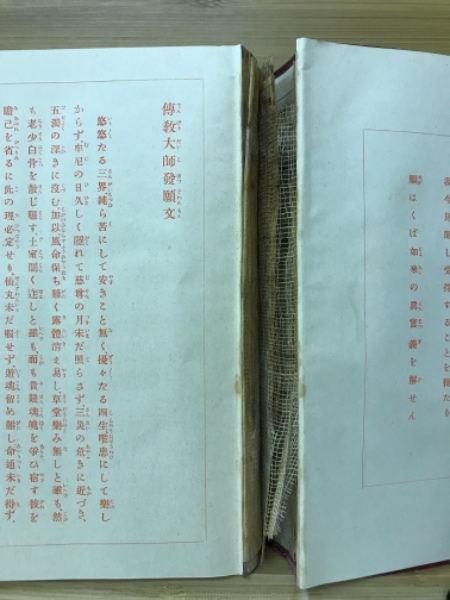 我今見聞し受持することを得たり
願はくば如來の眞實義を解せん
傳敎大師發願文
悠悠たる三界純ら苦にして安きこと無く擾々たる四生唯患にして樂し
からず牟尼の日久しく隱れて慈尊の月未だ照らさず三災の危きに近づき、
五濁の深きに沒む加以風命保ち難く露體消え易し草堂樂み無しと雖も、然
も老少白骨を散じ曝す、土室闇く迮しと雖も、而も貴賤魂魄を爭ひ宿す彼を
瞻己を省るに此の理必定せり、仙丸未だ服せず、遊魂留め難し命通未だ得ず、